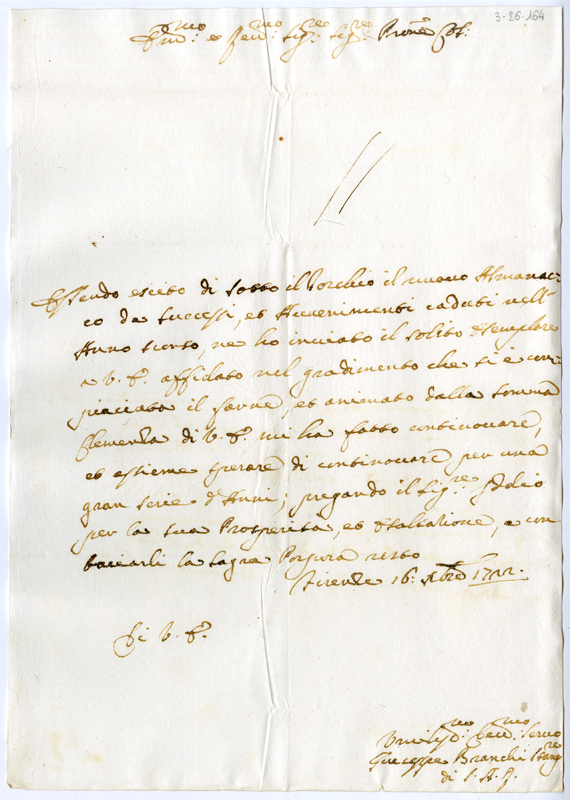 3-26-164
Em:mo e Rev:mo Sig:re Sig:re Prone Col:
Essendo escito di sotto il Torchio il nuovo Almanac-
co da successi, et Avvenimenti caduti nell'
Anno scorso, ne ho inviato il solito Esemplare
a V. E. affidato nel gradimento che si è com-
piaciuta il farne, et animato dalla somma
Clemenza di V. E. mi ha fatto continovare,
et assieme sperare di continovare per una
gran serie d'Anni; pregando il Sig.re Iddio
per la sua Prosperità, et Esaltatione, e con
baciarli la sagra Porpora resto
Firenze 16. Xbre 1722.
Di V. E.
Umiliss:mo Dev:mo Servo
Giuseppe Branchi Stamp.re
di S. A. R.